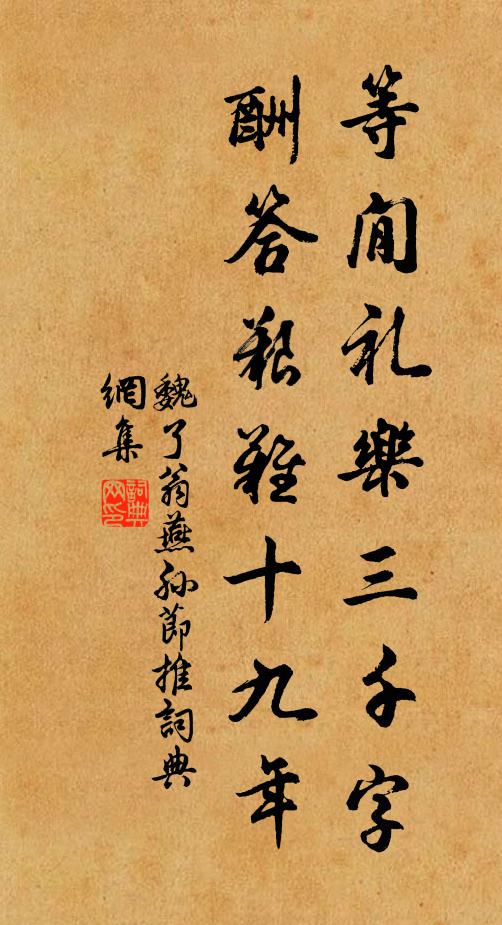 等閒礼樂三千字
酬答艱難十九年
魏了翁燕孙節推詞典
網集
詞典
网印